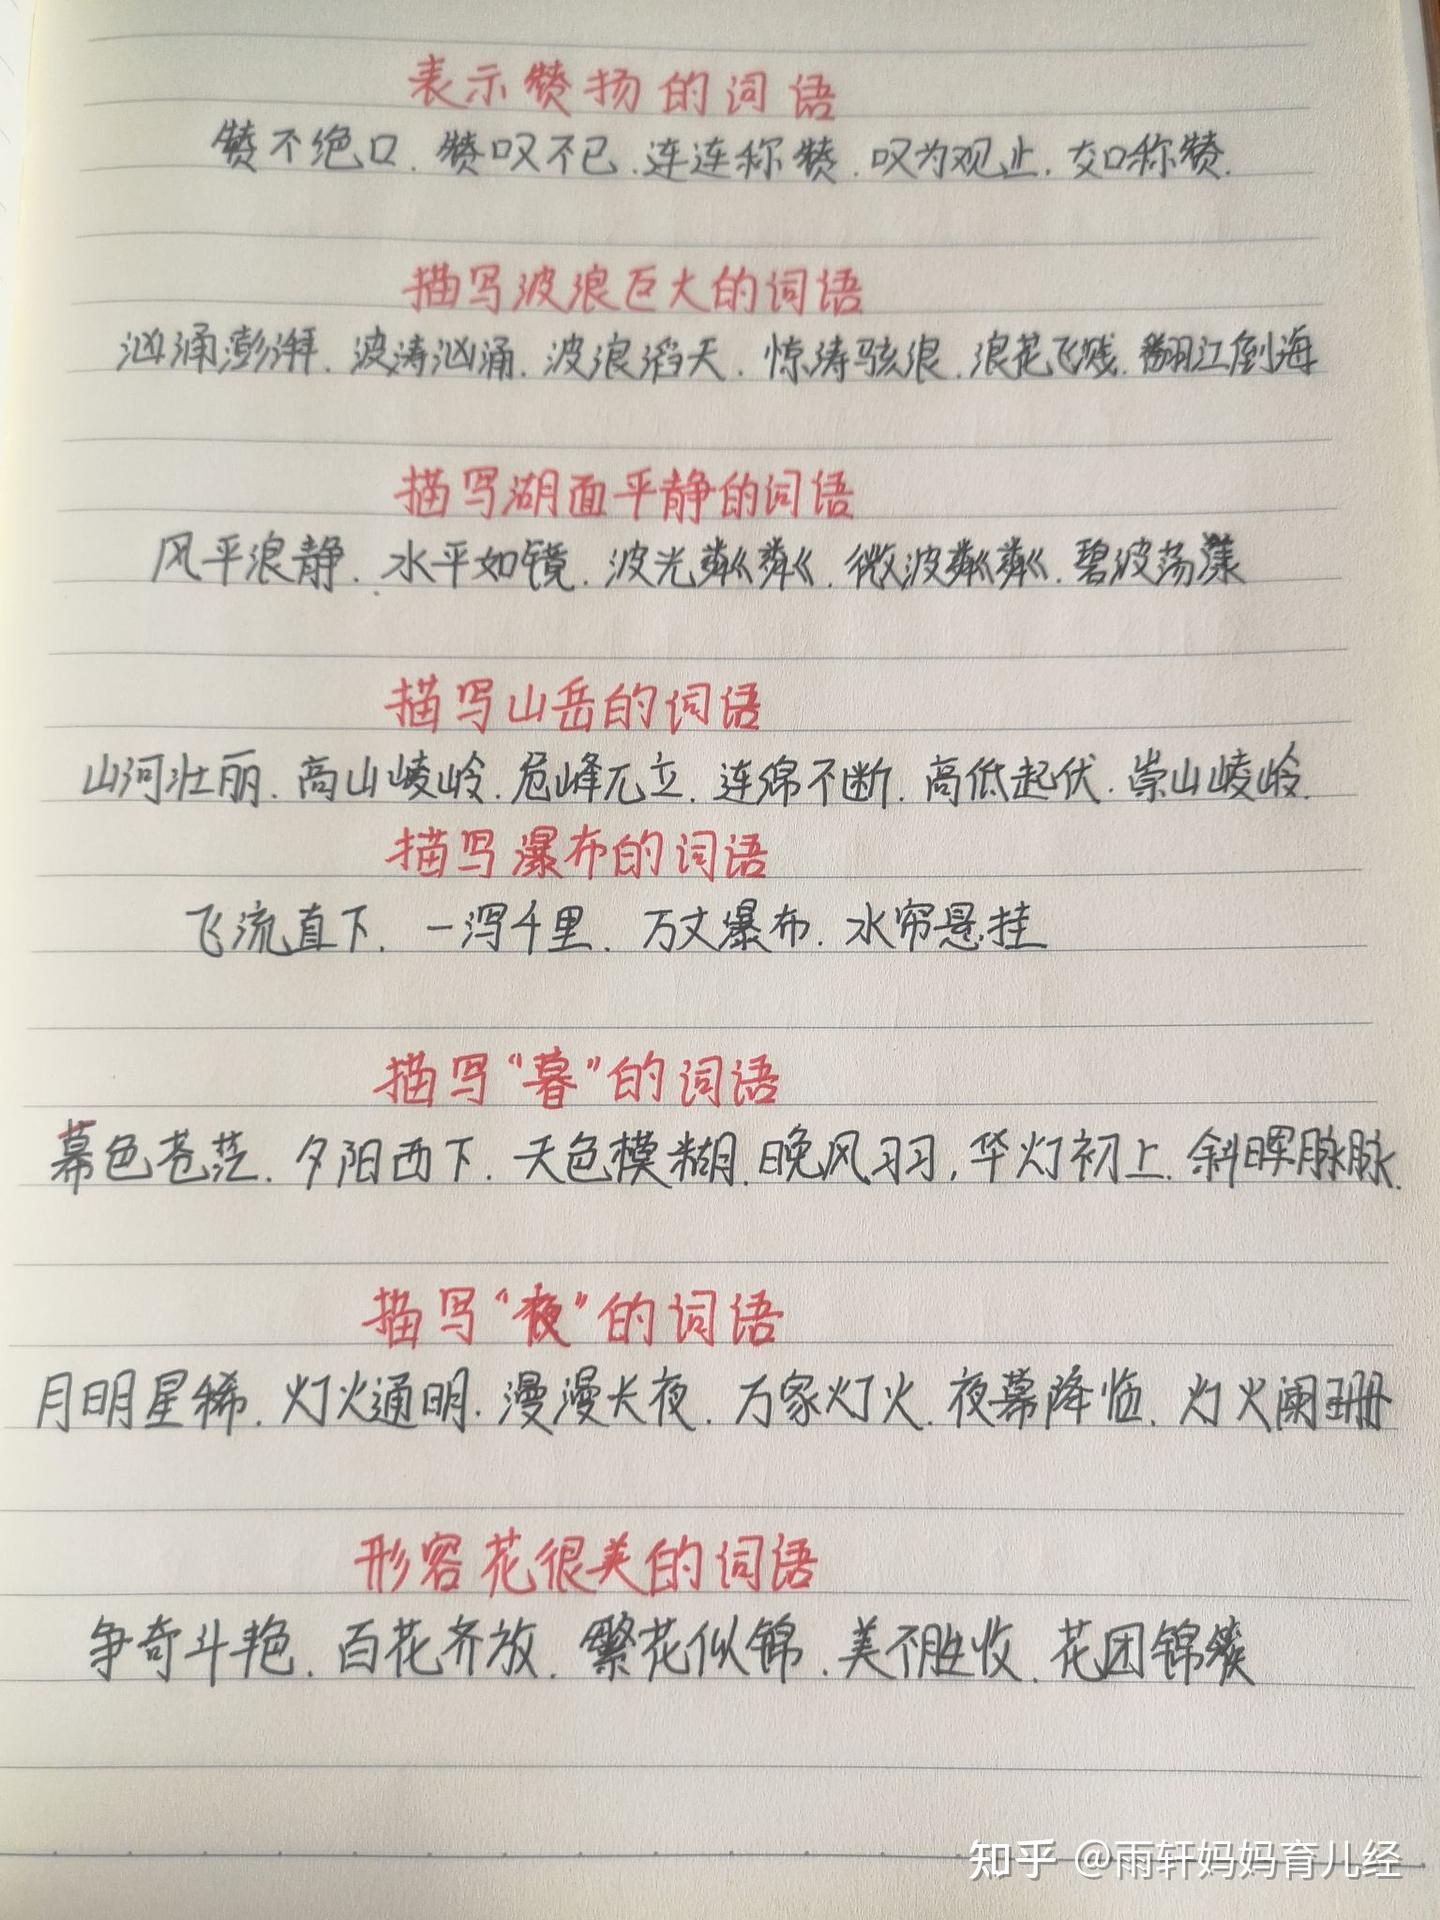 表示赞扬的词语
赞不绝口.赞叹不已.连连称赞.叹为观止.交口称赞.
描写波浪巨大的词语
汹涌澎湃.波涛汹涌.波浪滔天.惊涛骇浪.浪花飞溅.翻江倒海
描写湖面平静的词语
风平浪静.水平如镜.波光粼粼.微波粼粼.碧波荡漾
描写山岳的词语
山河壮丽.高山崚岭.危峰兀立.连绵不断.高低起伏.崇山崚岭.
描写瀑布的词语
飞流直下.一泻千里.万丈瀑布.水帘悬挂
描写“暮”的词语
幕色苍茫.夕阳西下.天色模糊.晚风习习,华灯初上.斜晖脉脉.
描写“夜”的词语
月明星稀.灯火通明.漫漫长夜.万家灯火.夜幕降临.灯火阑珊
形容花很美的词语
争奇斗艳.百花齐放.繁花似锦.美不胜收.花团锦簇
知乎 @雨轩妈妈育儿经